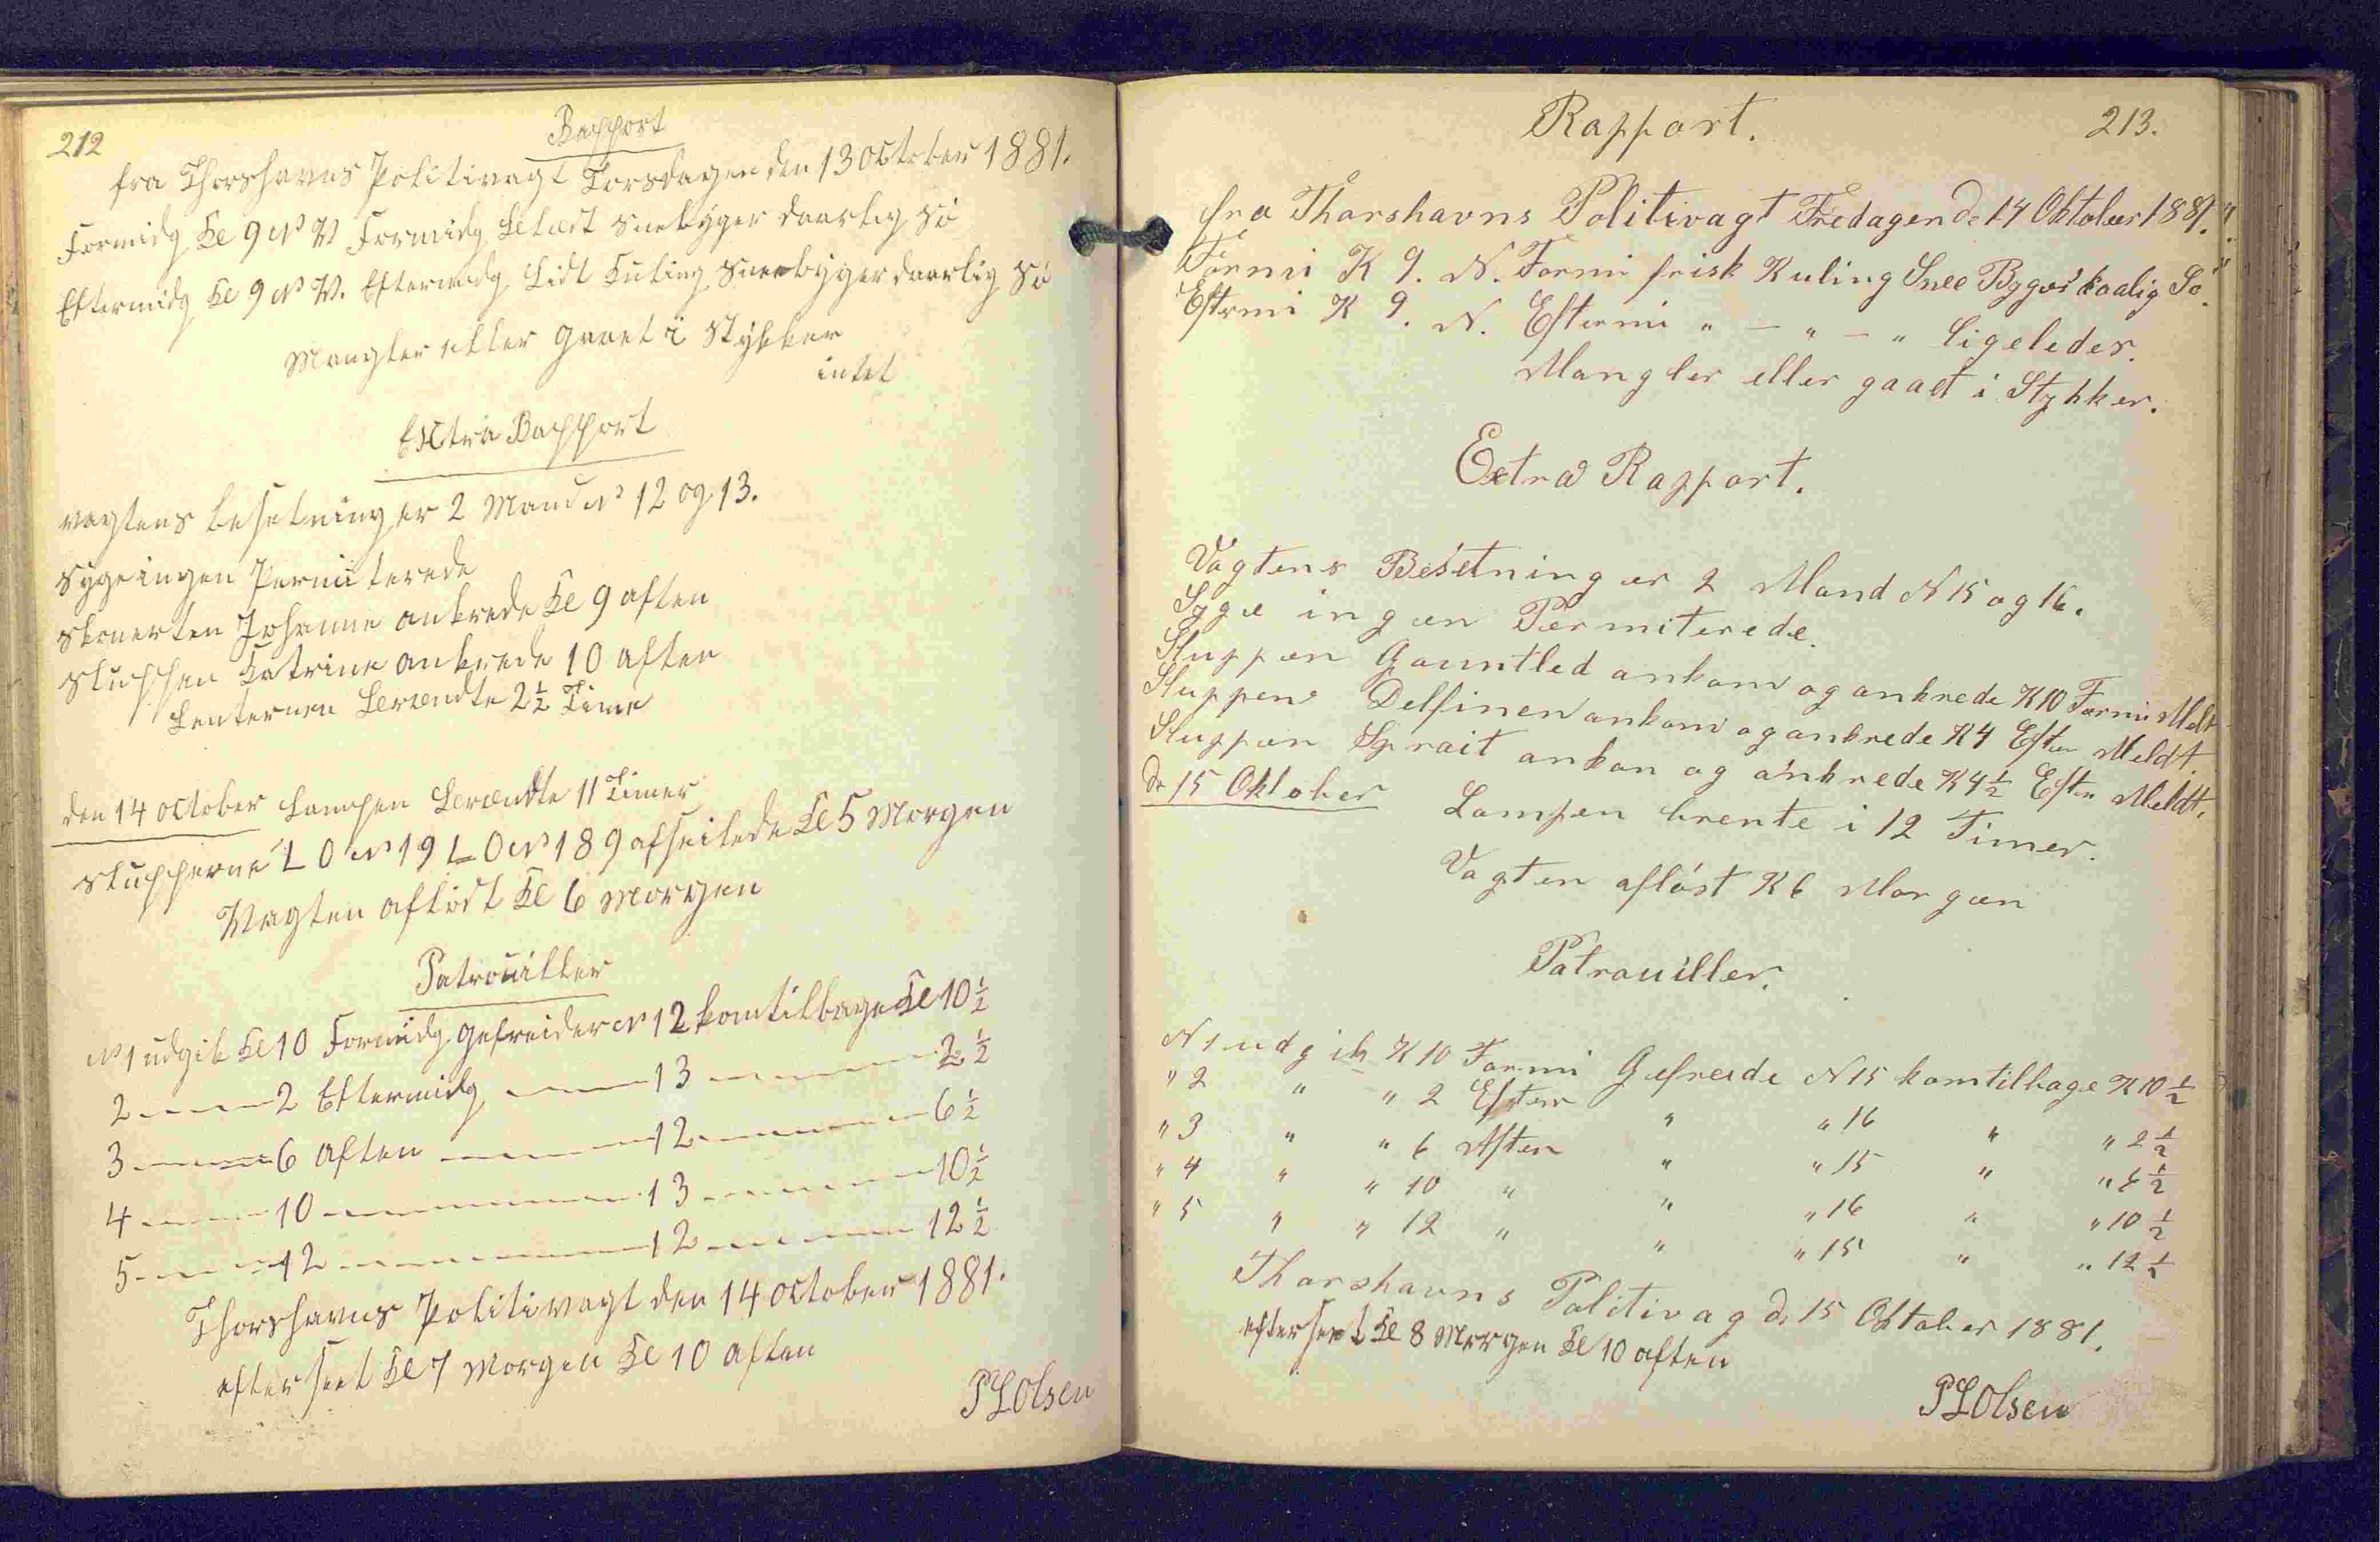 212
Rapport
fra Thorshavns Politivagt Torsdagen den 13 October 1881.
Formidg Kl 9 N V Formidg Snebyger daarlig Sö
Eftermidg Kl 9 N V. Eftermidg Lidt Kuling Sneebyger daarlig Sö
Mangler eller gaaet i Stykker
intet
Extra Rapport
vagtens besetning er 2 Mand No 12 og 13.
Syge ingen Permiterede
Skonerten Johanne ankrede Kl 9 aften
Sluppen Katrine ankrede 10 aften
Lenternen Brændte 2½ Time
den 14 October Lampen Brændte 11 Timer
Slupperne L O No 19 L O No 189 afseilede Kl 5 Morgen
Vagten aflöst Kl 6 Morgen
Patrouiller
No 1 udgik Kl 10 Formidg gefreider No 12 kom tilbage Kl 10½
2 — — 2 Eftermidg — — 13 — — 2½
3 — — 6 aften — — 12 — — 6½
4 — — 10 — — 13 — — 10½
5 — — 12 — — 12 — — 12½
Thorshavns Politivagt den 14 October 1881.
efterseet Kl 7 Morgen Kl 10 aften
PLOlsen
Rapport.
213.
fra Thorshavns Politivagt Fredagen d. 14 Oktober 1881.
Formi K 9. N. Formi frisk Kuling Snee Byger Sö.
Eftrmi K 9. N. Eftermi " — " — " ligeledes.
Mangler eller gaaet i Stykker.
Extra Rapport.
Vagtens Besetning er 2 Mand N 15 og 16.
Syge ingen Permiterede.
Sluppen Gauntled ankom og ankrede K 10 Formi Meldt
Sluppen Delfinen ankom og ankrede K 4 Efter Meldt.
Sluppen Sprait ankom og ankrede K 4½ Efter Meldt.
d. 15 Oktober Lampen brente i 12 Timer.
Vagten aflöst K 6 Morgen
Patrouiller.
N 1 udgik K 10 Formi Gefreide N 15 kom tilbage K 10½
" 2 " " 2 Efter " " 16 " " 2½
" 3 " " 6 Aften " " 15 " " 6½
" 4 " " 10 " " " 16 " " 10½
" 5 " " 12 " " " 15 " " 12½
Thorshavns Politivag d. 15 Oktober 1881.
efterseet Kl 8 Morgen Kl 10 aften
PLOlsen